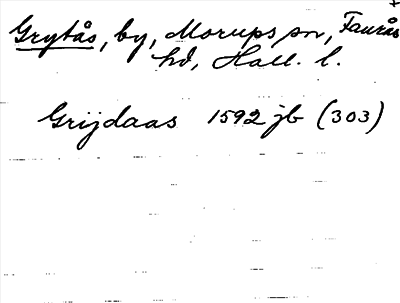 Grytås, by, Morups sn, Faurås
hd, Hall. l.
Grijdaas 1592 jb (303)